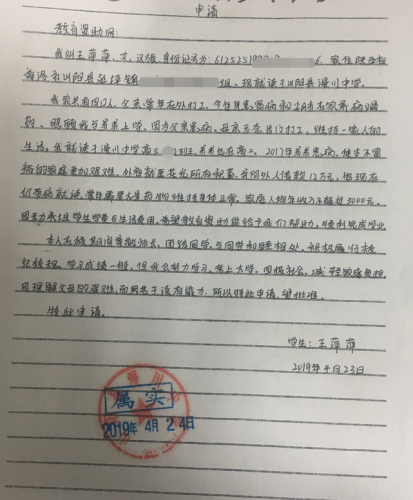 申请
教育资助网:
我叫王萍萍,女,汉族,身份证号为:612525199 6,家住陕西省
商洛市山阳县延坪镇 组,现就读于山阳县漫川中学。
我家共有四口人,父亲常年在外打工,今年年患胃病和 在家养病喝
药、照顾我与弟弟上学,因为父亲患病,母亲 打工,维持一家人的
生活,我就读于漫川中学高三 1班,弟弟也在高二。2017年爷爷患病,使本不富
裕的家庭更加艰难,外科 花光所有积蓄,并向外人借款12万元,他现在
仍带病就读,常年需要大量药物维持身体正常,家庭人均年收入不超过3000元,
因无力承担学生学费与生活费用,希望教育资助能给予我们帮助,顺利完成学业
本人在校期间尊敬师长,团结同学,与同学和睦相处,积极履行校
纪校规,学习成绩一般,但我会努力学习,考上大学,回报社会,减轻家庭负担,
因理解父母的艰难,而因苦于没有能力,所以特此申请,望批准。
特此申请。
学生:王萍萍
2019年4月23日
川
属实
2019年4月24日